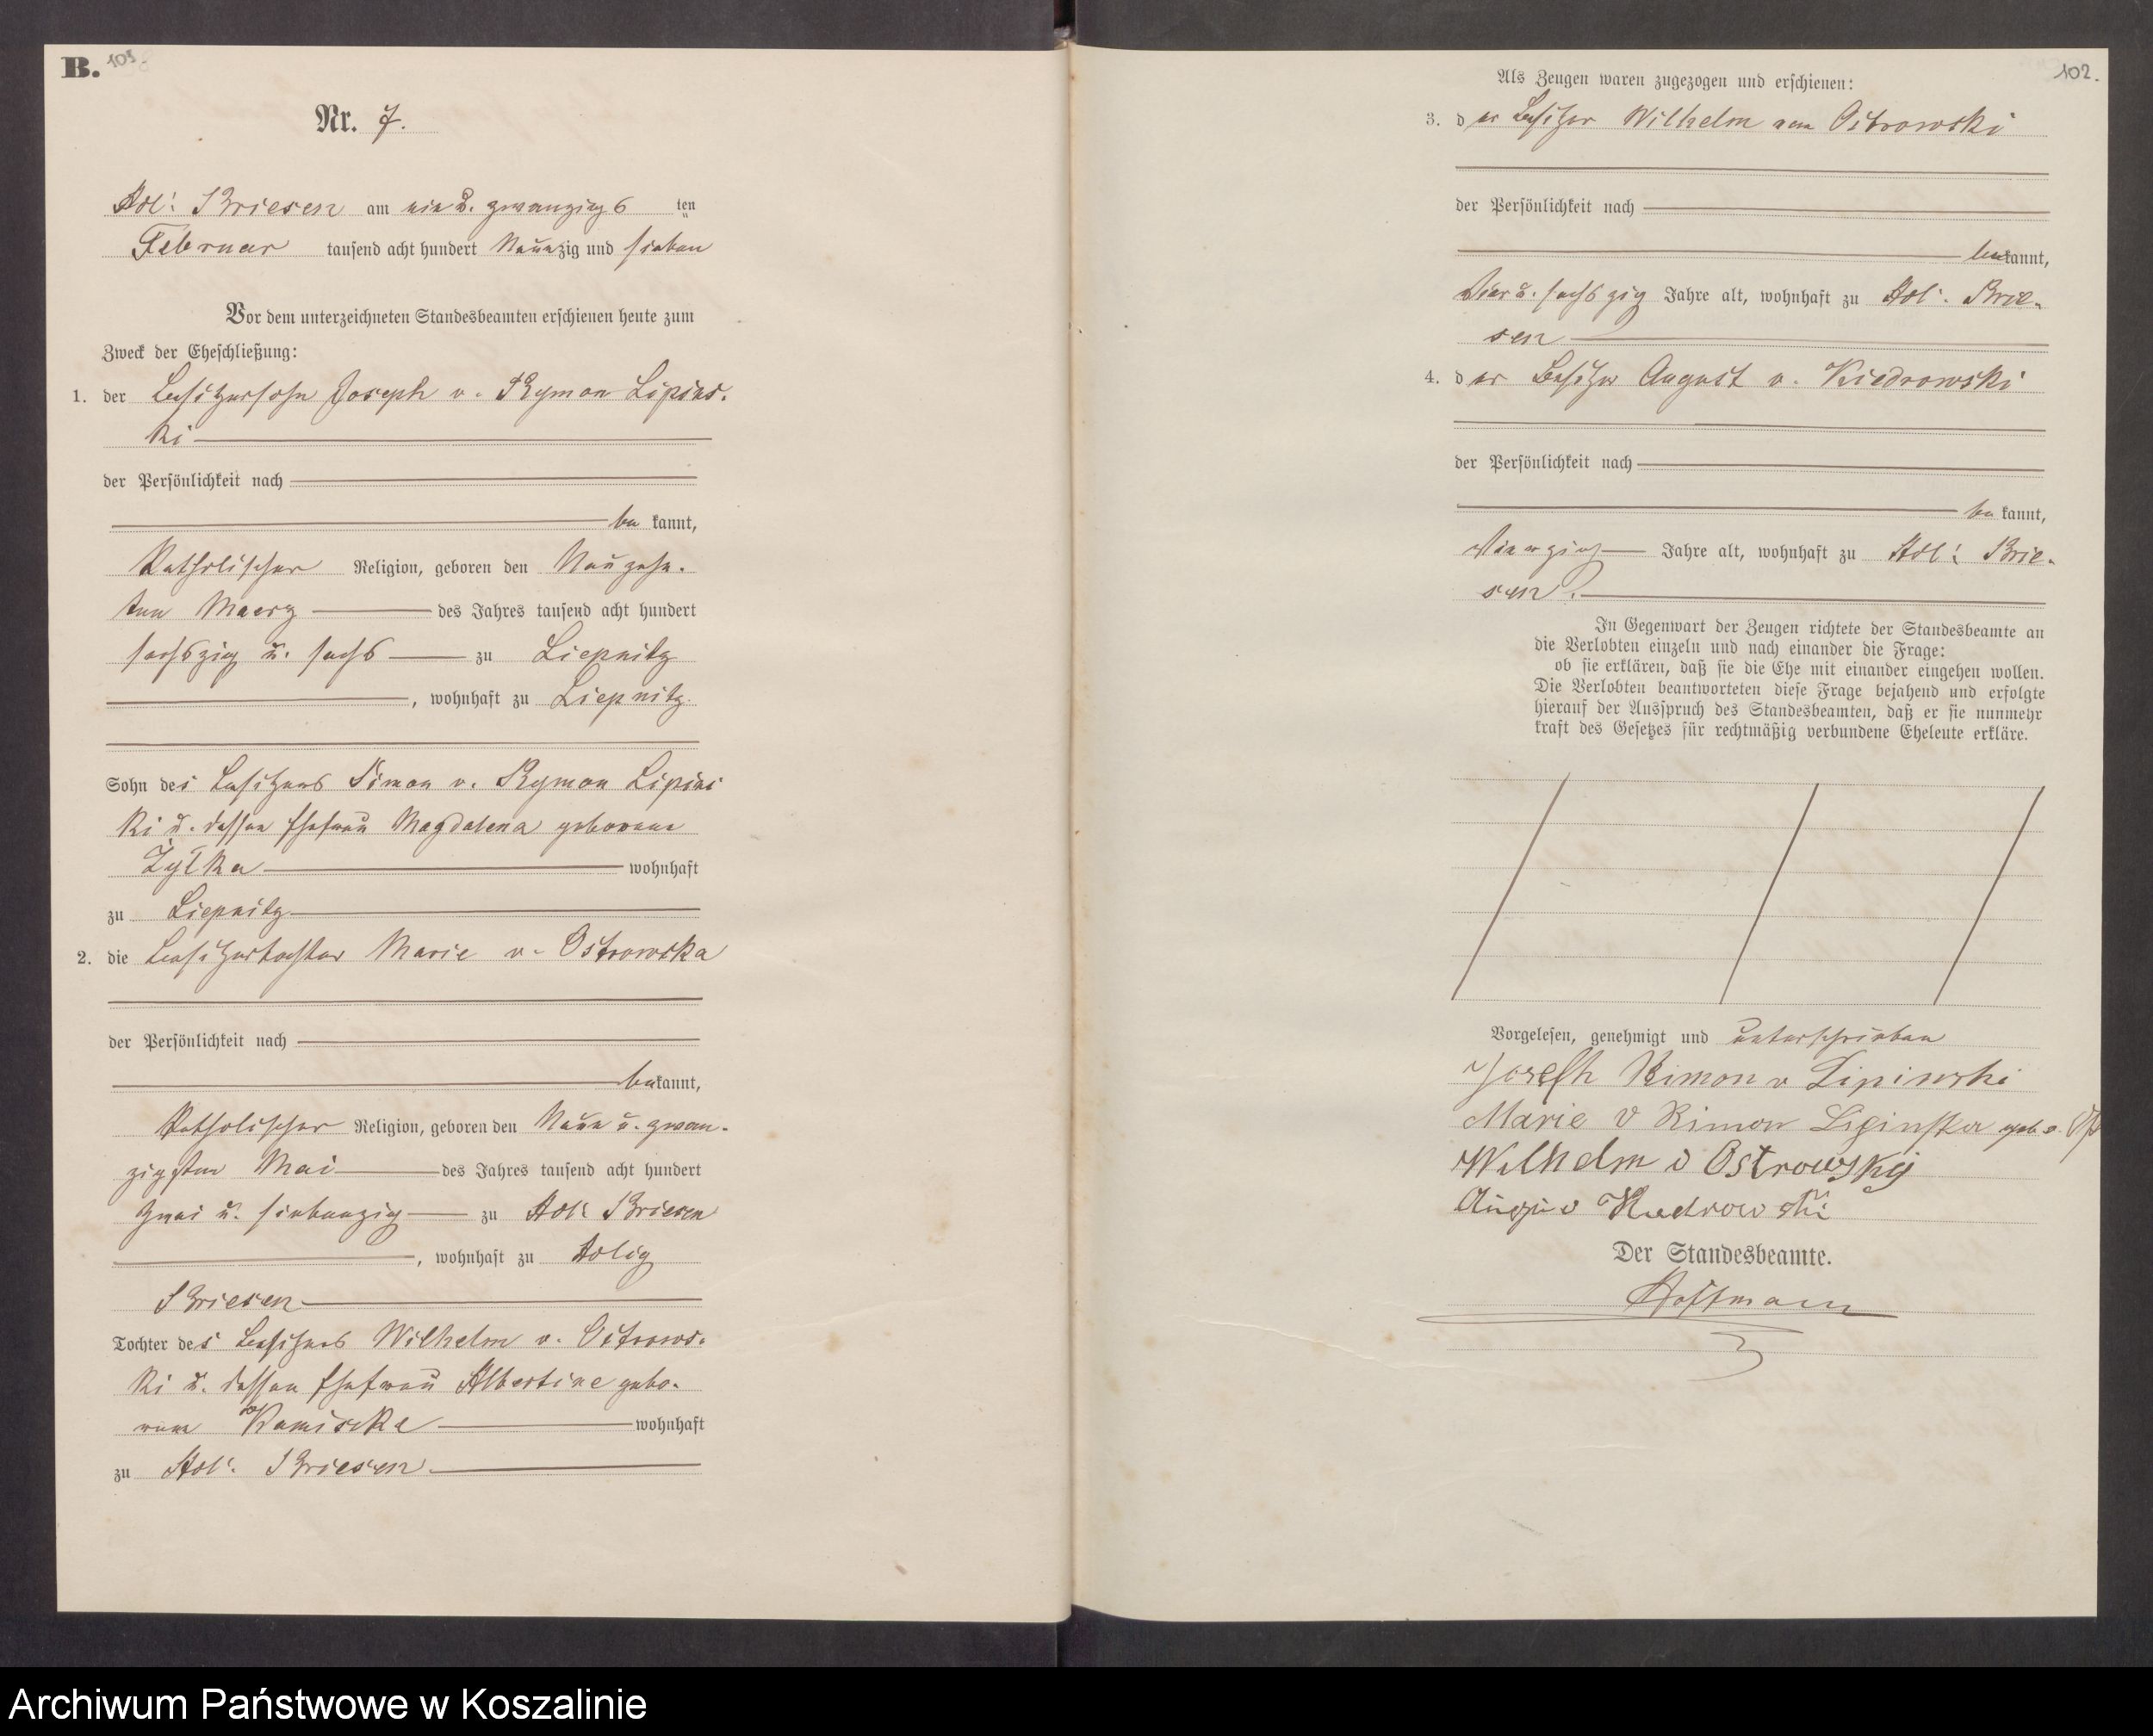 B. 103
Nr. 7.
Adl: Briesen am ein u. zwanzigs ten
Februar tausend acht hundert Neunzig und sieben
Vor dem unterzeichneten Standesbeamten erschienen heute zum
Zweck der Eheschließung:
1. der Besitzersohn Joseph v. Rymon Lipins-
ki
der Persönlichkeit nach
be kannt,
Katholischer Religion, geboren den Neunzehn-
ten Maerz des Jahres tausend acht hundert
sechszig u. sechs zu Liepnitz
, wohnhaft zu Liepnitz
Sohn des Besitzers Simon v. Rymon Lipins
ki u. dessen Ehefrau Magdalena geborene
Żyłka wohnhaft
zu Liepnitz
2. die Besitzertochter Marie v. Ostrowska
der Persönlichkeit nach
bekannt,
Katholischer Religion, geboren den Neun u. zwan-
zigsten Mai des Jahres tausend acht hundert
Zwei u. siebenzig zu Adl: Briesen
, wohnhaft zu Adlig
Briesen
Tochter des Besitzers Wilhelm v. Ostrows-
ki u. dessen Ehefrau Albertine gebo-
rene wohnhaft
zu Adl: Briesen
102.
Als Zeugen waren zugezogen und erschienen:
3. der Besitzer Wilhelm von Ostrowski
der Persönlichkeit nach
bekannt,
Vier u. sechszig Jahre alt, wohnhaft zu Adl: Brie-
sen
4. der Besitzer August v. Kiedrowski
der Persönlichkeit nach
be kannt,
Vierzig Jahre alt, wohnhaft zu Adl: Brie-
sen.
In Gegenwart der Zeugen richtete der Standesbeamte an
die Verlobten einzeln und nach einander die Frage:
ob sie erklären, daß sie die Ehe mit einander eingehen wollen.
Die Verlobten beantworteten diese Frage bejahend und erfolgte
hierauf der Ausspruch des Standesbeamten, daß er sie nunmehr
kraft des Gesetzes für rechtmäßig verbundene Eheleute erkläre.
Vorgelesen, genehmigt und unterschrieben
Joseph Rimon v Lipinski
Marie v Rimon Lipinska geb v.
Wilhelm v Ostrowsky
v Kiedrowski
Der Standesbeamte.
Hoffmann
Archiwum Państwowe w Koszalinie